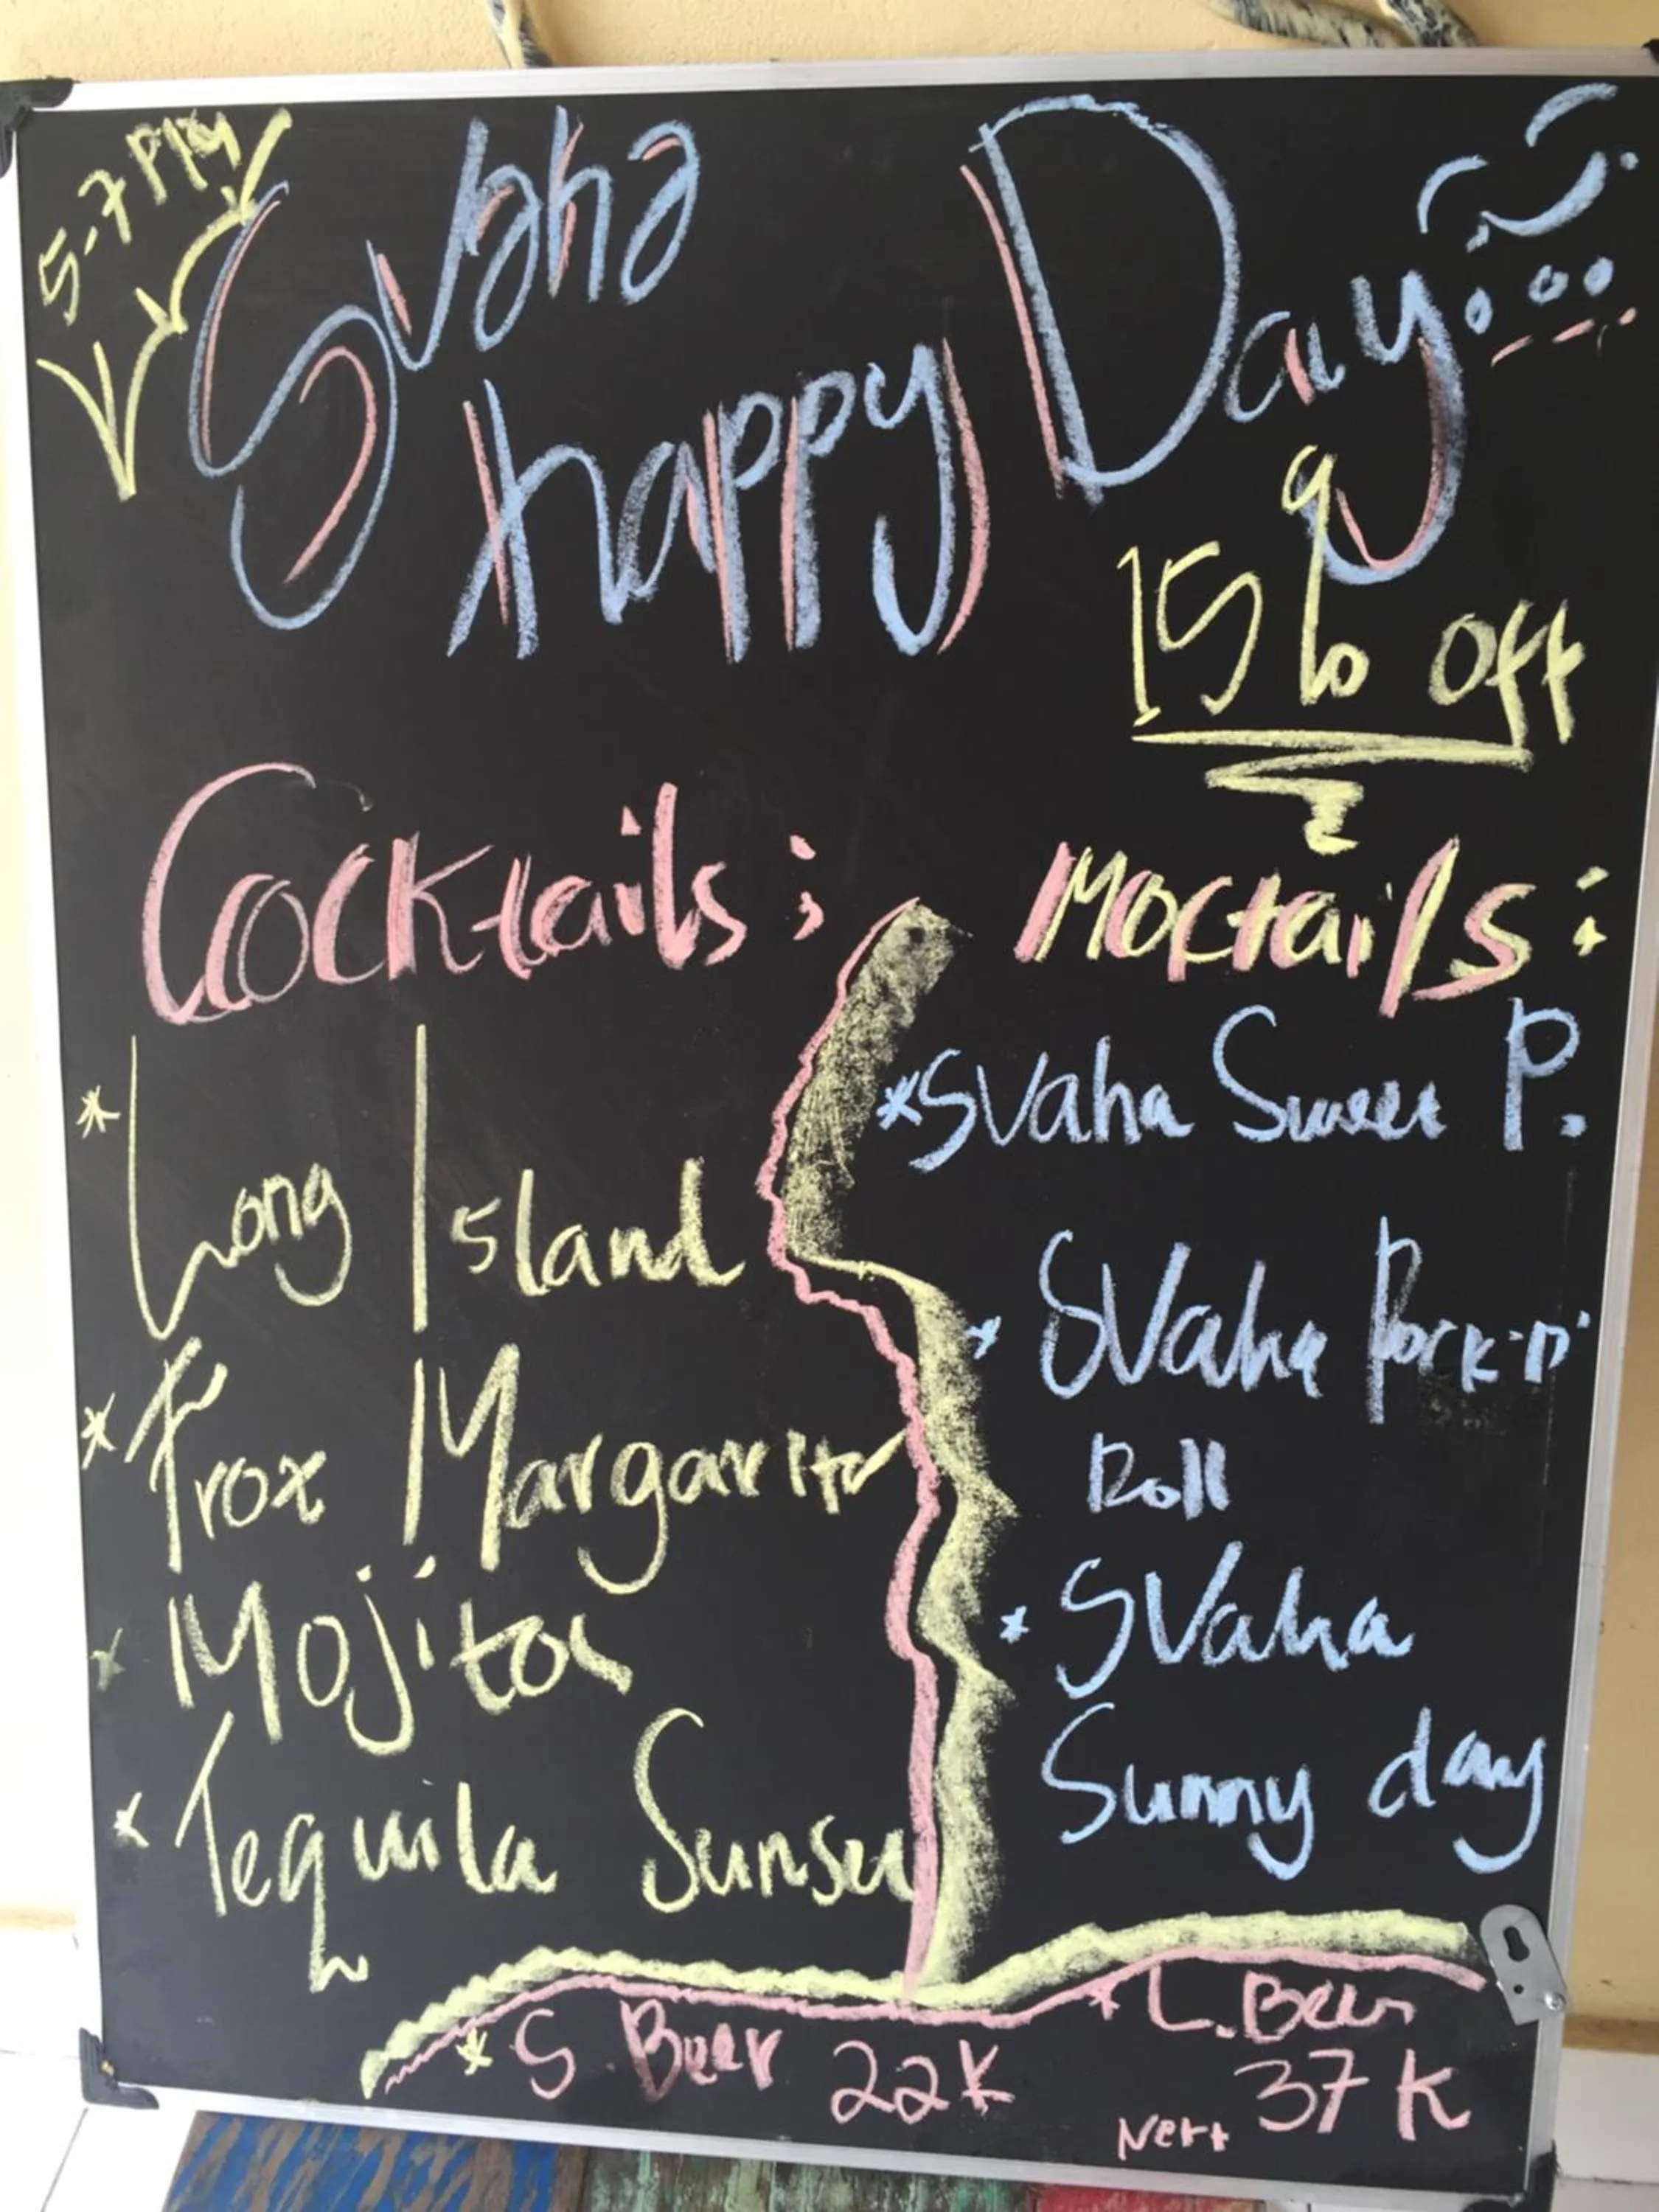 5-7 PM
Svaha
happy Day
15% off
Cocktails :
* Long Island
* Froz Margarita
* Mojitos
* Tequila Sunset
Moctails :
* Svaha Sweet P.
* Svaha Rock-n'
Roll
* Svaha
Sunny day
* S. Beer 22K
* L. Beer
Nett 37K